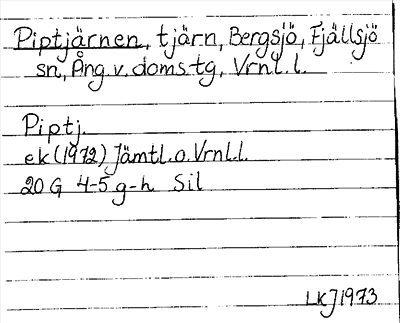 Piptjärnen, tjärn, Bergsjö, Fjällsjö
sn, Ång. v. doms.tg, Vrnl. l.
Piptj.
ek (1972) Jämtl. o. Vrnl. l.
20 G 4-5 g-h Sil
LKJ 1973